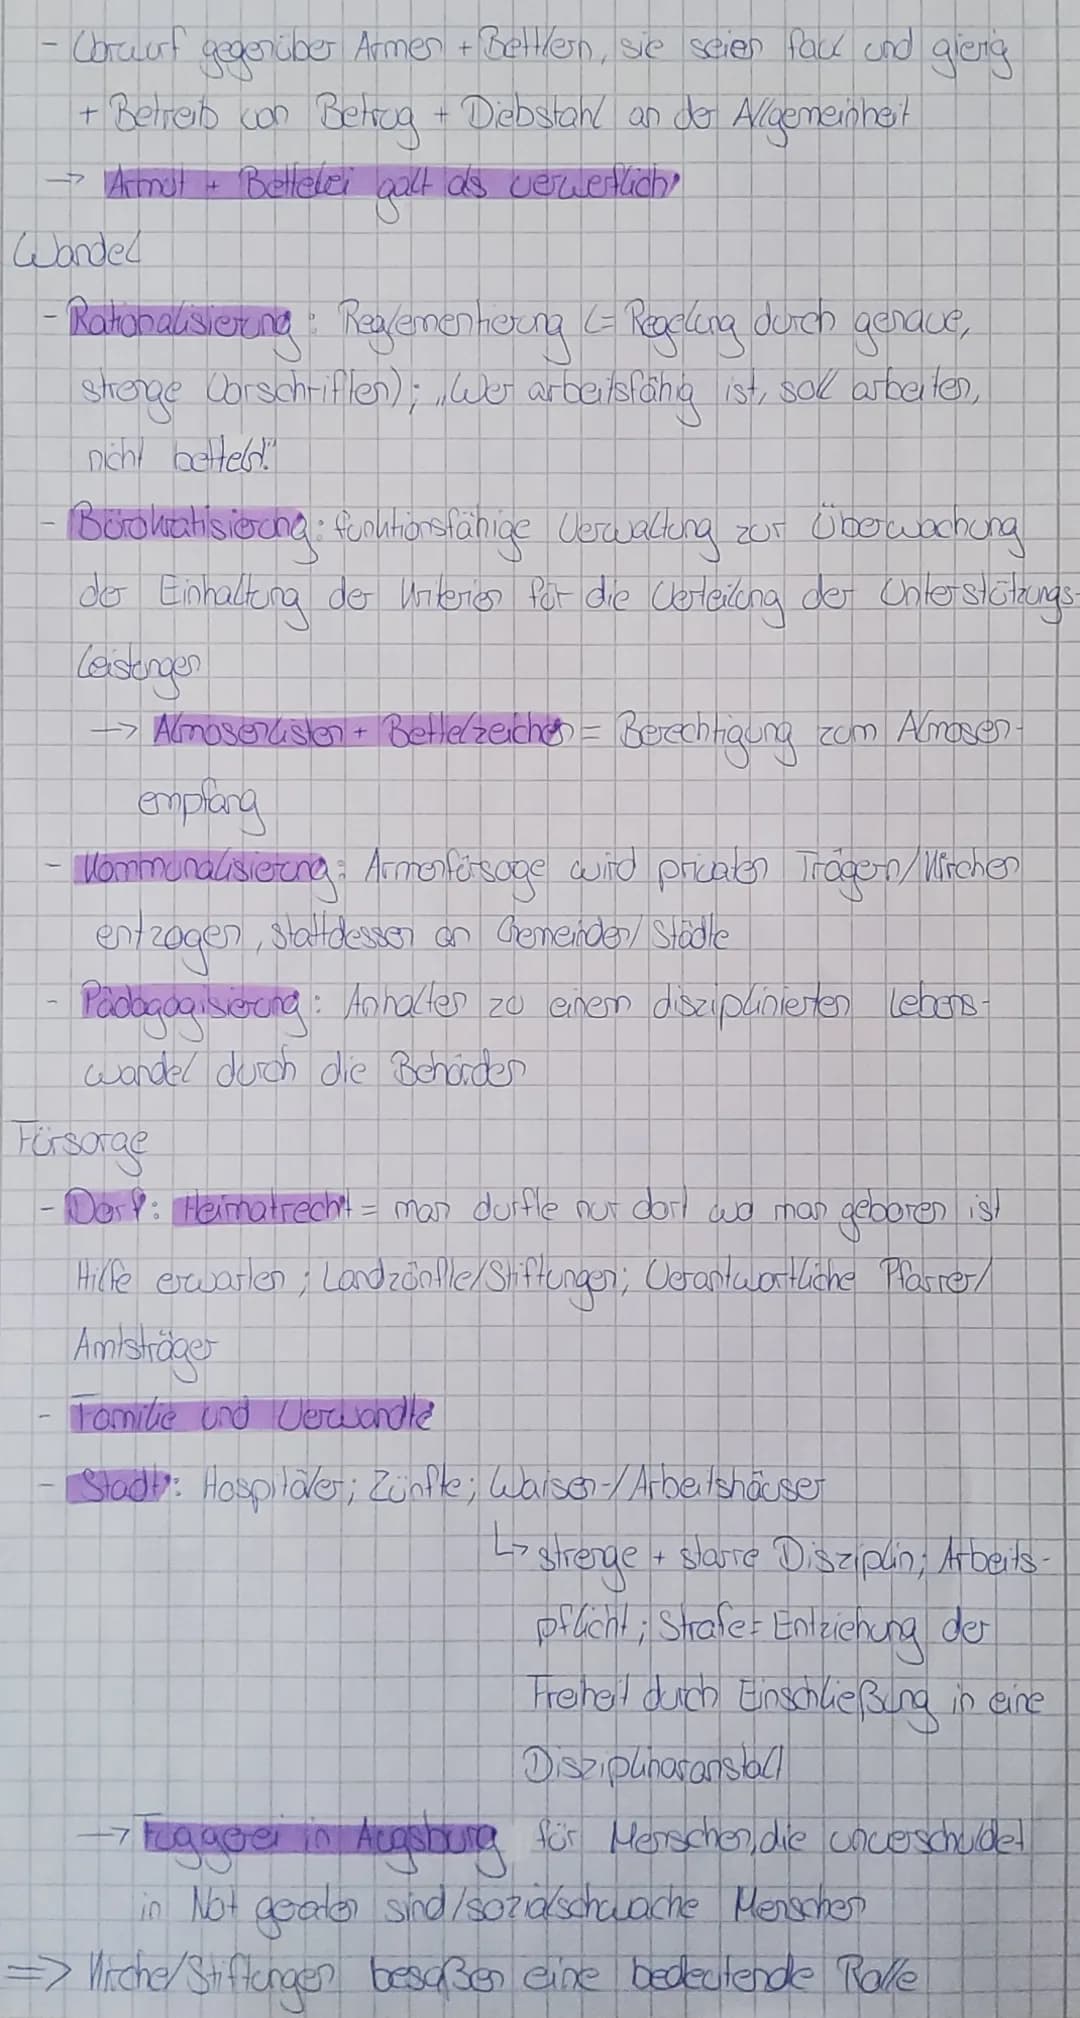 - Vorwurf gegenüber Armen + Bettlern, sie seien faul und gierig
+ Betreib von Betrug + Diebstahl an der Allgemeinheit
→ Armut + Bettelei galt als verwerflich
Wandel
- Rationalisierung: Reglementierung (= Regelung durch genaue,
strenge Vorschriften); „Wer arbeitsfähig ist, soll arbeiten,
nicht betteln!"
- Bürokratisierung: funktionsfähige Verwaltung zur Überwachung
der Einhaltung der Kriterien für die Verteilung der Unterstützungs-
leistungen
→ Almosenlisten + Bettelzeichen = Berechtigung zum Almosen-
empfang
- Kommunalisierung: Armenfürsoge wird privaten Trägern/Kirchen
entzogen, stattdessen an Gemeinden/Städte
- Pädagogisierung: Anhalten zu einem disziplinierten Lebens-
wandel durch die Behörden
Fürsorge
- Dorf: Heimatrecht = man durfte nur dort wo man geboren ist
Hilfe erwarten; Landzünfte/Stiftungen; Verantwortliche Pfarrer/
Amtsträger
- Familie und Verwandte
- Stadt: Hospitäler; Zünfte; Waisen-/Arbeitshäuser
↳ strenge + starre Disziplin; Arbeits-
pflicht; Strafe = Entziehung der
Freiheit durch Einschließung in eine
Disziplinaranstalt
→ Fuggerei in Augsburg für Menschen, die unverschuldet
in Not geraten sind/sozialschwache Menschen
=> Kirche/Stiftungen besaßen eine bedeutende Rolle